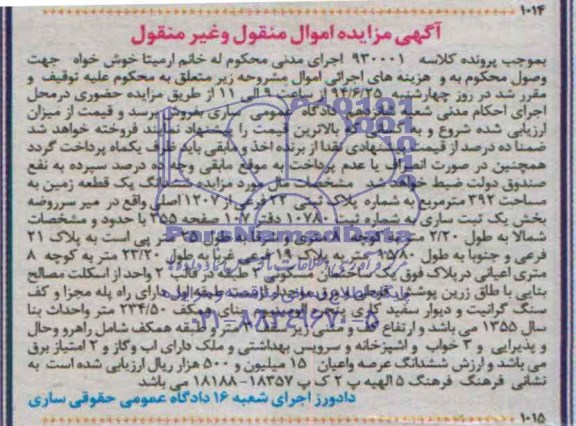 ۱۰۱۴
آگهی مزایده اموال منقول و غیر منقول
بموجب پرونده کلاسه ۹۳۰۰۰۱ اجرای مدنی محکوم له خانم ارمیتا خوش خواه جهت
وصول محکوم به و هزینه های اجرائی اموال مشروحه زیر متعلق به محکوم علیه توقیف و
مقرر شد در روز چهارشنبه ۹۴/۶/۲۵ از ساعت ۹ الی ۱۱ از طریق مزایده حضوری درمحل
اجرای احکام مدنی شعبه دادگاه عمومی ساری بفروش برسد و قیمت از میزان
ارزیابی شده شروع و به کسانی که بالاترین قیمت را پیشنهاد نمایند فروخته خواهد شد
ضمنا ده درصد از قیمت پیشنهادی نقدا از برنده اخذ و مابقی باید ظرف یکماه پرداخت گردد
همچنین در صورت انصراف یا عدم پرداخت به موقع مابقی وجه ده درصد سپرده به نفع
صندوق دولت ضبط خواهد شد مشخصات مال مورد مزایده ششدانگ یک قطعه زمین به
مساحت ۳۹۲ مترمربع به شماره پلاک ثبتی ۲۲ فرعی از ۱۲۰۷ اصلی واقع در میر سرروضه
بخش یک ثبت ساری به شماره ثبت ۱۰۷۸۰ دفتر ۱۰۷ صفحه ۳۵۵ با حدود و مشخصات
شمالا به طول ۲/۲۰ متر به کوچه ۸ متری و شرقا به طول متر پی است به پلاک ۲۱
فرعی و جنوبا به طول ۱۵/۸۰ متر به پلاک ۱۹ فرعی غربا به طول ۲۳/۲۰ متر به کوچه ۸
متری اعیانی درپلاک فوق یک ساختمان مسکونی ۲ طبقه در قالب ۲ واحد از اسکلت مصالح
بنایی با طاق زرین پوشش طبقه اول دارای راه پله مجزا و کف
سنگ گرانیت و دیوار سفید کاری پنجره آلومینیوم بنای همکف ۲۳۴/۵۰ متر واحداث بنا
سال ۱۳۵۵ می باشد و ارتفاع مفید زیر سقف متر و طبقه همکف شامل راهرو وحال
و پذیرایی و ۳ خواب و اشپزخانه و سرویس بهداشتی و ملک دارای اب وگاز و ۲ امتیاز برق
می باشد و ارزش ششدانگ عرصه واعیان ۱۵ میلیون و ۵۰۰ هزار ریال ارزیابی شده است به
نشانی فرهنگ فرهنگ ۵ الهیه پ ۲ ک پ ۱۸۳۵۷-۱۸۱۸۸ می باشد
دادورز اجرای شعبه ۱۶ دادگاه عمومی حقوقی ساری
۱۰۱۵
ParsNamadData